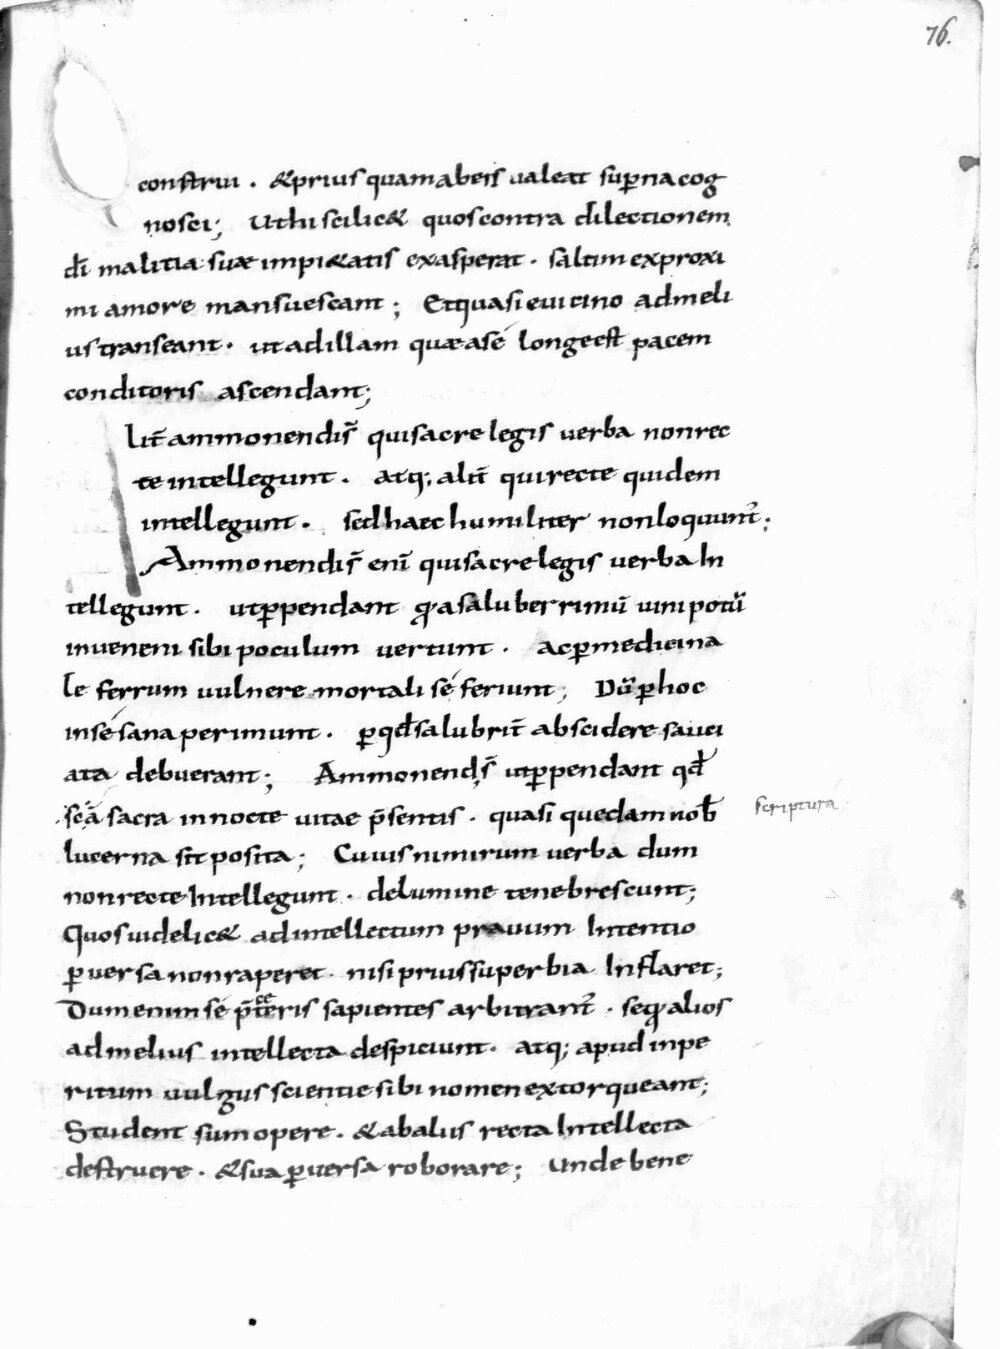 76.
construi . & prius quam ab eis ualeat sup̄na cog
nosci; Ut hi scilic& quos contra dilectionem
dī malitia suæ impi&atis exasperat . saltim ex proxi
mi amore mansuescant ; Et quasi e uicino ad meli
us transeant . ut ad illam quæ a sé longe est pacem
conditoris ascendant;
Lit̄ ammonendis̄ qui sacre legis uerba non rec
te intellegunt . atq; alit̄ qui recte quidem
intellegunt . sed haec humiliter non loquunt̄ ;
Ammonendis̄ enī qui sacre legis uerba In
tellegunt . ut p̱pendant qd̄ a saluberrimū uini potū
in ueneni sibi poculum uertunt . ac p̱ medicina
le ferrum uulnere mortali sé feriunt ; Dū p̱ hoc
in sé sana perimunt . p̱ qd̄ salubrit̄ abscidere sauci
ata debuerant ; Ammonends̄ ut p̱pendant qd̄
scā sacra in nocte uitae p̄sentis . quasi quedam nob̄
scriptura
lucerna sit posita ; Cuius nimirum uerba dum
non recte Intellegunt . de lumine tenebrescunt ;
Quos uidelic& ad intellectum prauum Intentio
p̱uersa non raperet . nisi prius superbia Inflaret ;
Dum enim sé p̄ceteris sapientes arbitrant̄ . seq̱ alios
ad melius intellecta despiciunt . atq; apud inpe
ritum uulgus scientie sibi nomen extorqueant ;
Student sumopere . & ab alus recta Intellecta
destruere . & sua p̱uersa roborare ; Unde bene